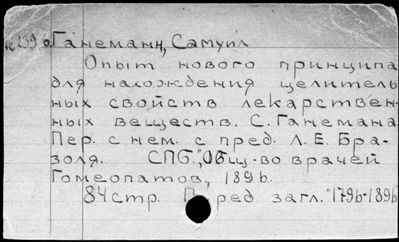 Ганеманн, Самуил
Опыт нового принципа
для нахождения целитель-
ных свойств лекарствен-
ных веществ. С. Ганемана
Пер. с нем. с пред. Л. Е. Бра-
золя. СПб., "Общ-во врачей
Гомеопатов, 1896.
84 стр. Перед загл. "1796-1896